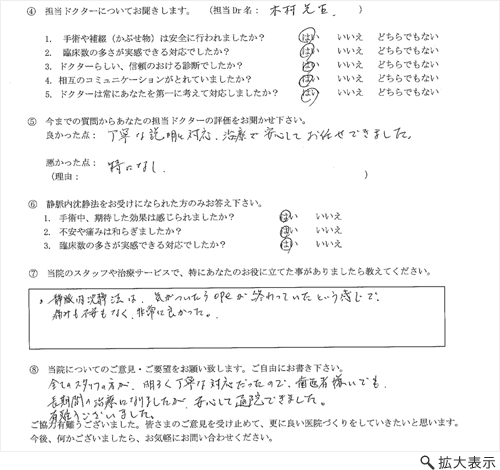 ④ 担当ドクターについてお聞きします。 (担当Dr名: 木村先生 )
1. 手術や補綴(かぶせ物)は安全に行われましたか? はい いいえ どちらでもない
2. 臨床数の多さが実感できる対応でしたか? はい いいえ どちらでもない
3. ドクターらしい、信頼のおける診断でしたか? はい いいえ どちらでもない
4. 相互のコミュニケーションがとれていましたか? はい いいえ どちらでもない
5. ドクターは常にあなたを第一に考えて対応しましたか? はい いいえ どちらでもない
⑤ 今までの質問からあなたの担当ドクターの評価をお聞かせ下さい。
良かった点: 丁寧な説明と対応、治療で安心してお任せできました。
悪かった点: 特になし.
(理由: )
⑥ 静脈内沈静法をお受けになられた方のみお答え下さい。
1. 手術中、期待した効果は感じられましたか? はい いいえ
2. 不安や痛みは和らぎましたか? はい いいえ
3. 臨床数の多さが実感できる対応でしたか? はい いいえ
⑦ 当院のスタッフや治療サービスで、特にあなたのお役に立てた事がありましたら教えてください。
静脈内沈静法は、気がついたらopeが終わっていたという感じで、
痛みも不安もなく、非常に良かった。
⑧ 当院についてのご意見・ご要望をお願い致します。ご自由にお書き下さい。
全てのスタッフの方が、明るく丁寧な対応だったので、歯医者嫌いでも、
長期間の治療になりましたが、安心して通院できました。
有難うございました。
ご協力有難うございました。皆さまのご意見を受け止めて、更に良い医院づくりをしていきたいと思います。
今後、何かございましたら、お気軽にお問い合わせください。
拡大表示